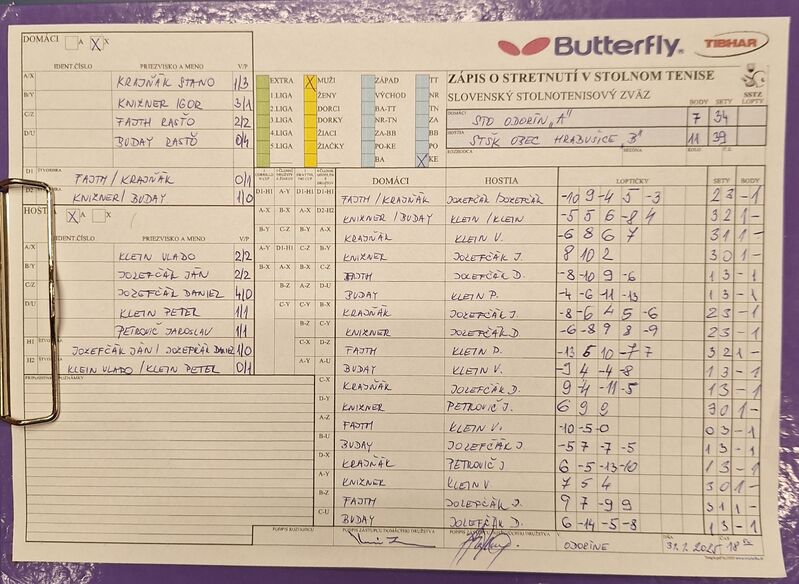 DOMÁCI A X
IDENT.ČÍSLO PRIEZVISKO A MENO V/P
A/X KRAJŇÁK STANO 1/3
B/Y KNIXNER IGOR 3/1
C/Z FAJTH RASŤO 2/2
D/U BUDAY RASŤO 0/4
D1 ŠTVORHRA FAJTH / KRAJŇÁK 0/1
D2 ŠTVORHRA KNIXNER / BUDAY 1/0
HOSTIA X A X
IDENT.ČÍSLO PRIEZVISKO A MENO V/P
A/X KLEIN VLADO 2/2
B/Y JOZEFČÁK JÁN 2/2
C/Z JOZEFČÁK DANIEL 4/0
D/U KLEIN PETER 1/1
PETROVIČ JAROSLAV 1/1
H1 JOZEFČÁK JÁN / JOZEFČÁK DANIEL 1/0
H2 KLEIN VLADO / KLEIN PETER 0/1
PRIPOMIENKY, POZNÁMKY
EXTRA
1.LIGA
2.LIGA
3.LIGA
4.LIGA
5.LIGA
X MUŽI
ŽENY
DORCI
DORKY
ŽIACI
ŽIAČKY
ZÁPAD
VÝCHOD
BA-TT
NR-TN
ZA-BB
PO-KE
BA
TT
NR
TN
ZA
BB
PO
X KE
Butterfly
TIBHAR
ZÁPIS O STRETNUTÍ V STOLNOM TENISE
SLOVENSKÝ STOLNOTENISOVÝ ZVÄZ
SSTZ
BODY SETY LOPTY
DOMÁCI STO ODORÍN „A" 7 34
HOSTIA STŠK OBEC HRABUŠICE „B" 11 39
ROZHODCA
DOMÁCI HOSTIA LOPTIČKY SETY BODY
D1-H1 FAJTH / KRAJŇÁK JOZEFČÁK / JOZEFČÁK -10 9 -4 5 -3 2 3 - 1
D2-H2 KNIXNER / BUDAY KLEIN / KLEIN -5 5 6 -8 4 3 2 1 -
KRAJŇÁK KLEIN V. -6 8 6 7 3 1 1 -
KNIXNER JOZEFČÁK J. 8 10 2 3 0 1 -
FAJTH JOZEFČÁK D. -8 -10 9 -6 1 3 - 1
BUDAY KLEIN P. -4 -6 -11 -13 1 3 - 1
KRAJŇÁK JOZEFČÁK J. -8 -6 4 5 -6 2 3 - 1
KNIXNER JOZEFČÁK D -6 -8 9 8 -9 2 3 - 1
FAJTH KLEIN P. -13 5 10 -7 7 3 2 1 -
BUDAY KLEIN V. -9 4 -4 -8 1 3 - 1
C-X KRAJŇÁK JOZEFČÁK D. 9 -4 -11 -5 1 3 - 1
D-Y KNIXNER PETROVIČ J. 6 9 9 3 0 1 -
A-Z FAJTH KLEIN V. -10 -5 -0 0 3 - 1
B-U BUDAY JOZEFČÁK J. -5 7 -7 -5 1 3 - 1
D-X KRAJŇÁK PETROVIČ J 6 -5 -13 -10 1 3 - 1
A-Y KNIXNER KLEIN V. 7 5 4 3 0 1 -
B-Z FAJTH JOZEFČÁK J. 9 7 -9 9 3 1 1 -
C-U BUDAY JOZEFČÁK D. 6 -14 -5 -8 1 3 - 1
PODPIS ROZHODCU PODPIS ZÁSTUPCU DOMÁCEHO DRUŽSTVA
ODORÍNE 31.1.2025 18